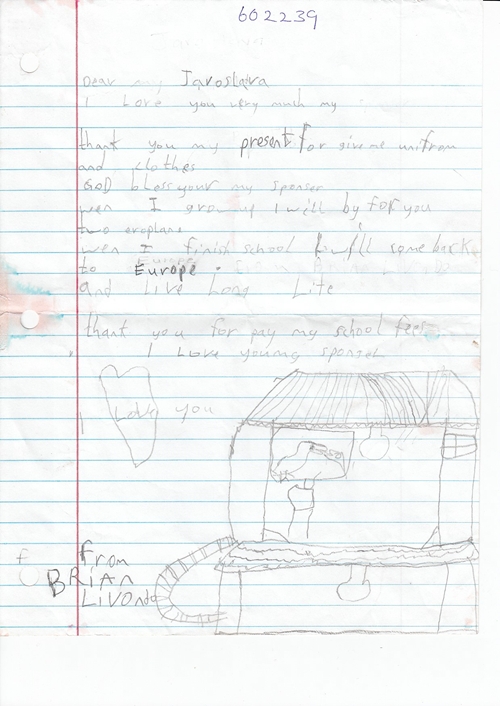 602239
Dear my Jaroslava
I Love you very much my
thank you my present for give me unifrom
and clothes
GOD bless your my sponser
wen I grow up I will by for you
two eroplane
wen I finish school I will come back
to Europe.
and Live Long Life
thank you for pay my school fees
I Love you my sponser
I Love you
from
BRiAn
Livondo